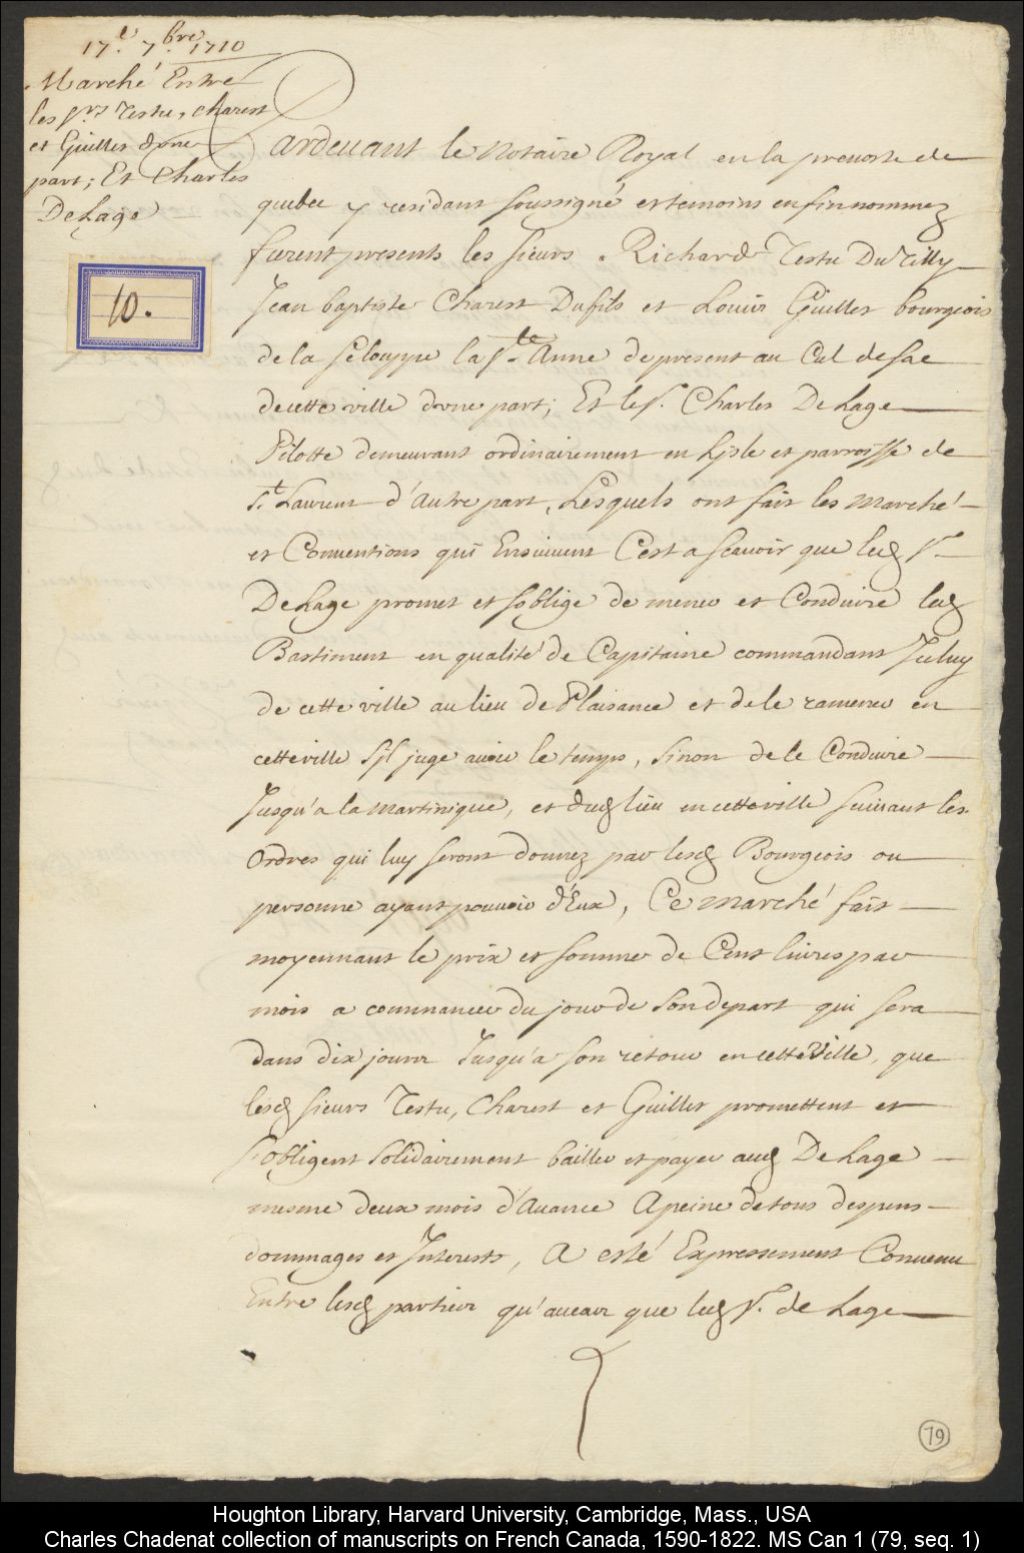 17.e 7.bre 1710
Marché Entre
les Srs Testu, charest
et Guillet d'une
part; Et Charles
DeLage
10.
Pardevant le notaire Royal en la prevosté de
quebec y residant soussigné et temoins enfin nommez
furent presents les sieurs Richard Testu DuTilly
Jean baptiste Charest Dufils et Louis Guillet bourgeois
de la Chalouppe la Ste Anne de present au Cul de sac
de cette ville d'une part; Et le Sr. Charles DeLage
Pilotte demeurant ordinairement en Lisle et parroisse de
St. Laurent d'autre part, Lesquels ont fait les Marché
et Conventions qui Ensuivent C'est a scavoir que led Sr
DeLage promet et soblige de mener et Conduire led
Bastiment en qualité de Capitaine commandant Iceluy
de cette ville au lieu de Plaisance et de le ramener en
cette ville s'il juge avoir le temps, sinon de le Conduire
Jusqu'a la Martinique, et dud lieu en cette ville suivant les
Ordres qui luy seront donnez par lesd Bourgeois ou
personne ayant pouvoir d'Eux, Ce marché fait
moyennant le prix et somme de Cent livres par
mois a commancer du jour de son depart qui sera
dans dix jours Jusqu'a son retour en cette Ville, que
lesd sieurs Testu, Charest et Guillet promettent et
s'obligent solidairement bailler et payer aud DeLage
mesme deux mois d'Avance A peine de tous despens
dommages et Interests, A esté Expressement Convenu
Entre lesd parties qu'au cas que led Sr. de Lage
79
Houghton Library, Harvard University, Cambridge, Mass., USA
Charles Chadenat collection of manuscripts on French Canada, 1590-1822. MS Can 1 (79, seq. 1)